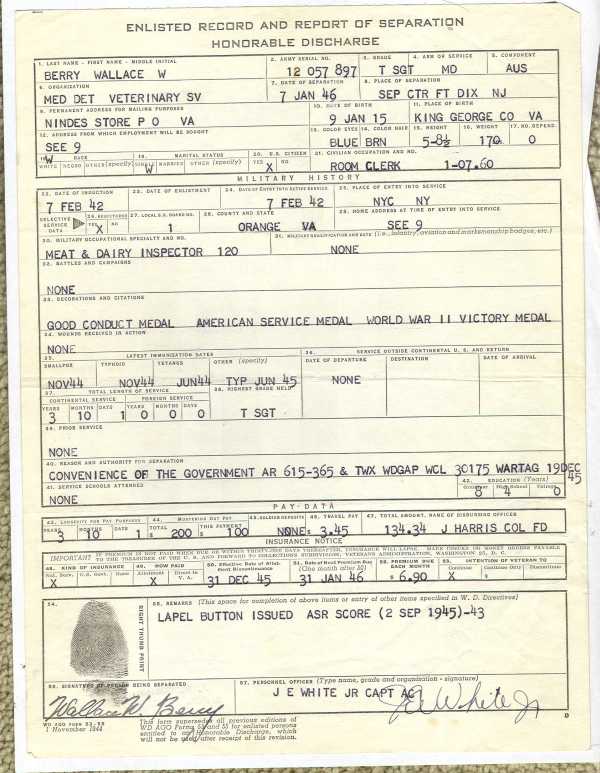 ENLISTED RECORD AND REPORT OF SEPARATION
HONORABLE DISCHARGE
1. LAST NAME - FIRST NAME - MIDDLE INITIAL 2. ARMY SERIAL NO. 3. GRADE 4. ARM OR SERVICE 5. COMPONENT
BERRY WALLACE W 12 057 897 T SGT MD AUS
6. ORGANIZATION 7. DATE OF SEPARATION 8. PLACE OF SEPARATION
MED DET VETERINARY SV 7 JAN 46 SEP CTR FT DIX NJ
9. PERMANENT ADDRESS FOR MAILING PURPOSES 10. DATE OF BIRTH 11. PLACE OF BIRTH
NINDES STORE P O VA 9 JAN 15 KING GEORGE CO VA
12. ADDRESS FROM WHICH EMPLOYMENT WILL BE SOUGHT 13. COLOR EYES 14. COLOR HAIR 15. HEIGHT 16. WEIGHT 17. NO. DEPEND.
SEE 9 BLUE BRN 5-8½ 170 0
18. RACE 19. MARITAL STATUS 20. U.S. CITIZEN 21. CIVILIAN OCCUPATION AND NO.
WHITE NEGRO OTHER (specify) SINGLE MARRIED OTHER (specify) YES NO
W W X ROOM CLERK 1-07.60
MILITARY HISTORY
22. DATE OF INDUCTION 23. DATE OF ENLISTMENT 24. DATE OF ENTRY INTO ACTIVE SERVICE 25. PLACE OF ENTRY INTO SERVICE
7 FEB 42 7 FEB 42 NYC NY
SELECTIVE SERVICE DATA 26. REGISTERED YES NO 27. LOCAL S.S. BOARD NO. 28. COUNTY AND STATE 29. HOME ADDRESS AT TIME OF ENTRY INTO SERVICE
X 1 ORANGE VA SEE 9
30. MILITARY OCCUPATIONAL SPECIALTY AND NO. 31. MILITARY QUALIFICATION AND DATE (i.e., infantry, aviation and marksmanship badges, etc.)
MEAT & DAIRY INSPECTOR 120 NONE
32. BATTLES AND CAMPAIGNS
NONE
33. DECORATIONS AND CITATIONS
GOOD CONDUCT MEDAL AMERICAN SERVICE MEDAL WORLD WAR II VICTORY MEDAL
34. WOUNDS RECEIVED IN ACTION
NONE
35. LATEST IMMUNIZATION DATES 36. SERVICE OUTSIDE CONTINENTAL U. S. AND RETURN
SMALLPOX TYPHOID TETANUS OTHER (specify) DATE OF DEPARTURE DESTINATION DATE OF ARRIVAL
NOV44 NOV44 JUN44 TYP JUN 45 NONE
37. TOTAL LENGTH OF SERVICE 38. HIGHEST GRADE HELD
CONTINENTAL SERVICE FOREIGN SERVICE
YEARS MONTHS DAYS YEARS MONTHS DAYS
3 10 1 0 0 0 T SGT
39. PRIOR SERVICE
NONE
40. REASON AND AUTHORITY FOR SEPARATION
CONVENIENCE OF THE GOVERNMENT AR 615-365 & TWX WDGAP WCL 30175 WARTAG 19DEC 45
41. SERVICE SCHOOLS ATTENDED 42. EDUCATION (Years)
NONE 8 4 0
PAY DATA
43. LONGEVITY FOR PAY PURPOSES 44. MUSTERING OUT PAY 45. SOLDIER DEPOSITS 46. TRAVEL PAY 47. TOTAL AMOUNT, NAME OF DISBURSING OFFICER
YEARS MONTHS DAYS TOTAL THIS PAYMENT
3 10 1 $ 200 $ 100 NONE $ 3.45 134.34 J HARRIS COL FD
INSURANCE NOTICE
IMPORTANT IF PREMIUM IS NOT PAID WHEN DUE OR WITHIN THIRTY-ONE DAYS THEREAFTER, INSURANCE WILL LAPSE. MAKE CHECKS OR MONEY ORDERS PAYABLE
TO THE TREASURER OF THE U. S. AND FORWARD TO COLLECTIONS SUBDIVISION, VETERANS ADMINISTRATION, WASHINGTON 25, D. C.
48. KIND OF INSURANCE 49. HOW PAID 50. Effective Date of Allotment Discontinuance 51. Date of Next Premium Due (One month after 50) 52. PREMIUM DUE EACH MONTH 53. INTENTION OF VETERAN TO
Nat. Serv. U.S. Govt. None Allotment Direct to V. A. Continue Continue Only Discontinue
X X 31 DEC 45 31 JAN 46 $ 6.90 X $
54. 55. REMARKS (This space for completion of above items or entry of other items specified in W. D. Directives)
RIGHT THUMB PRINT
LAPEL BUTTON ISSUED ASR SCORE (2 SEP 1945)-43
56. SIGNATURE OF PERSON BEING SEPARATED 57. PERSONNEL OFFICER (Type name, grade and organization - signature)
J E WHITE JR CAPT AC
Wallace W Berry J E White Jr
WD AGO FORM 53-55
1 November 1944
This form supersedes all previous editions of
WD AGO Forms 53 and 55 for enlisted persons
entitled to an Honorable Discharge, which
will not be used after receipt of this revision.
D